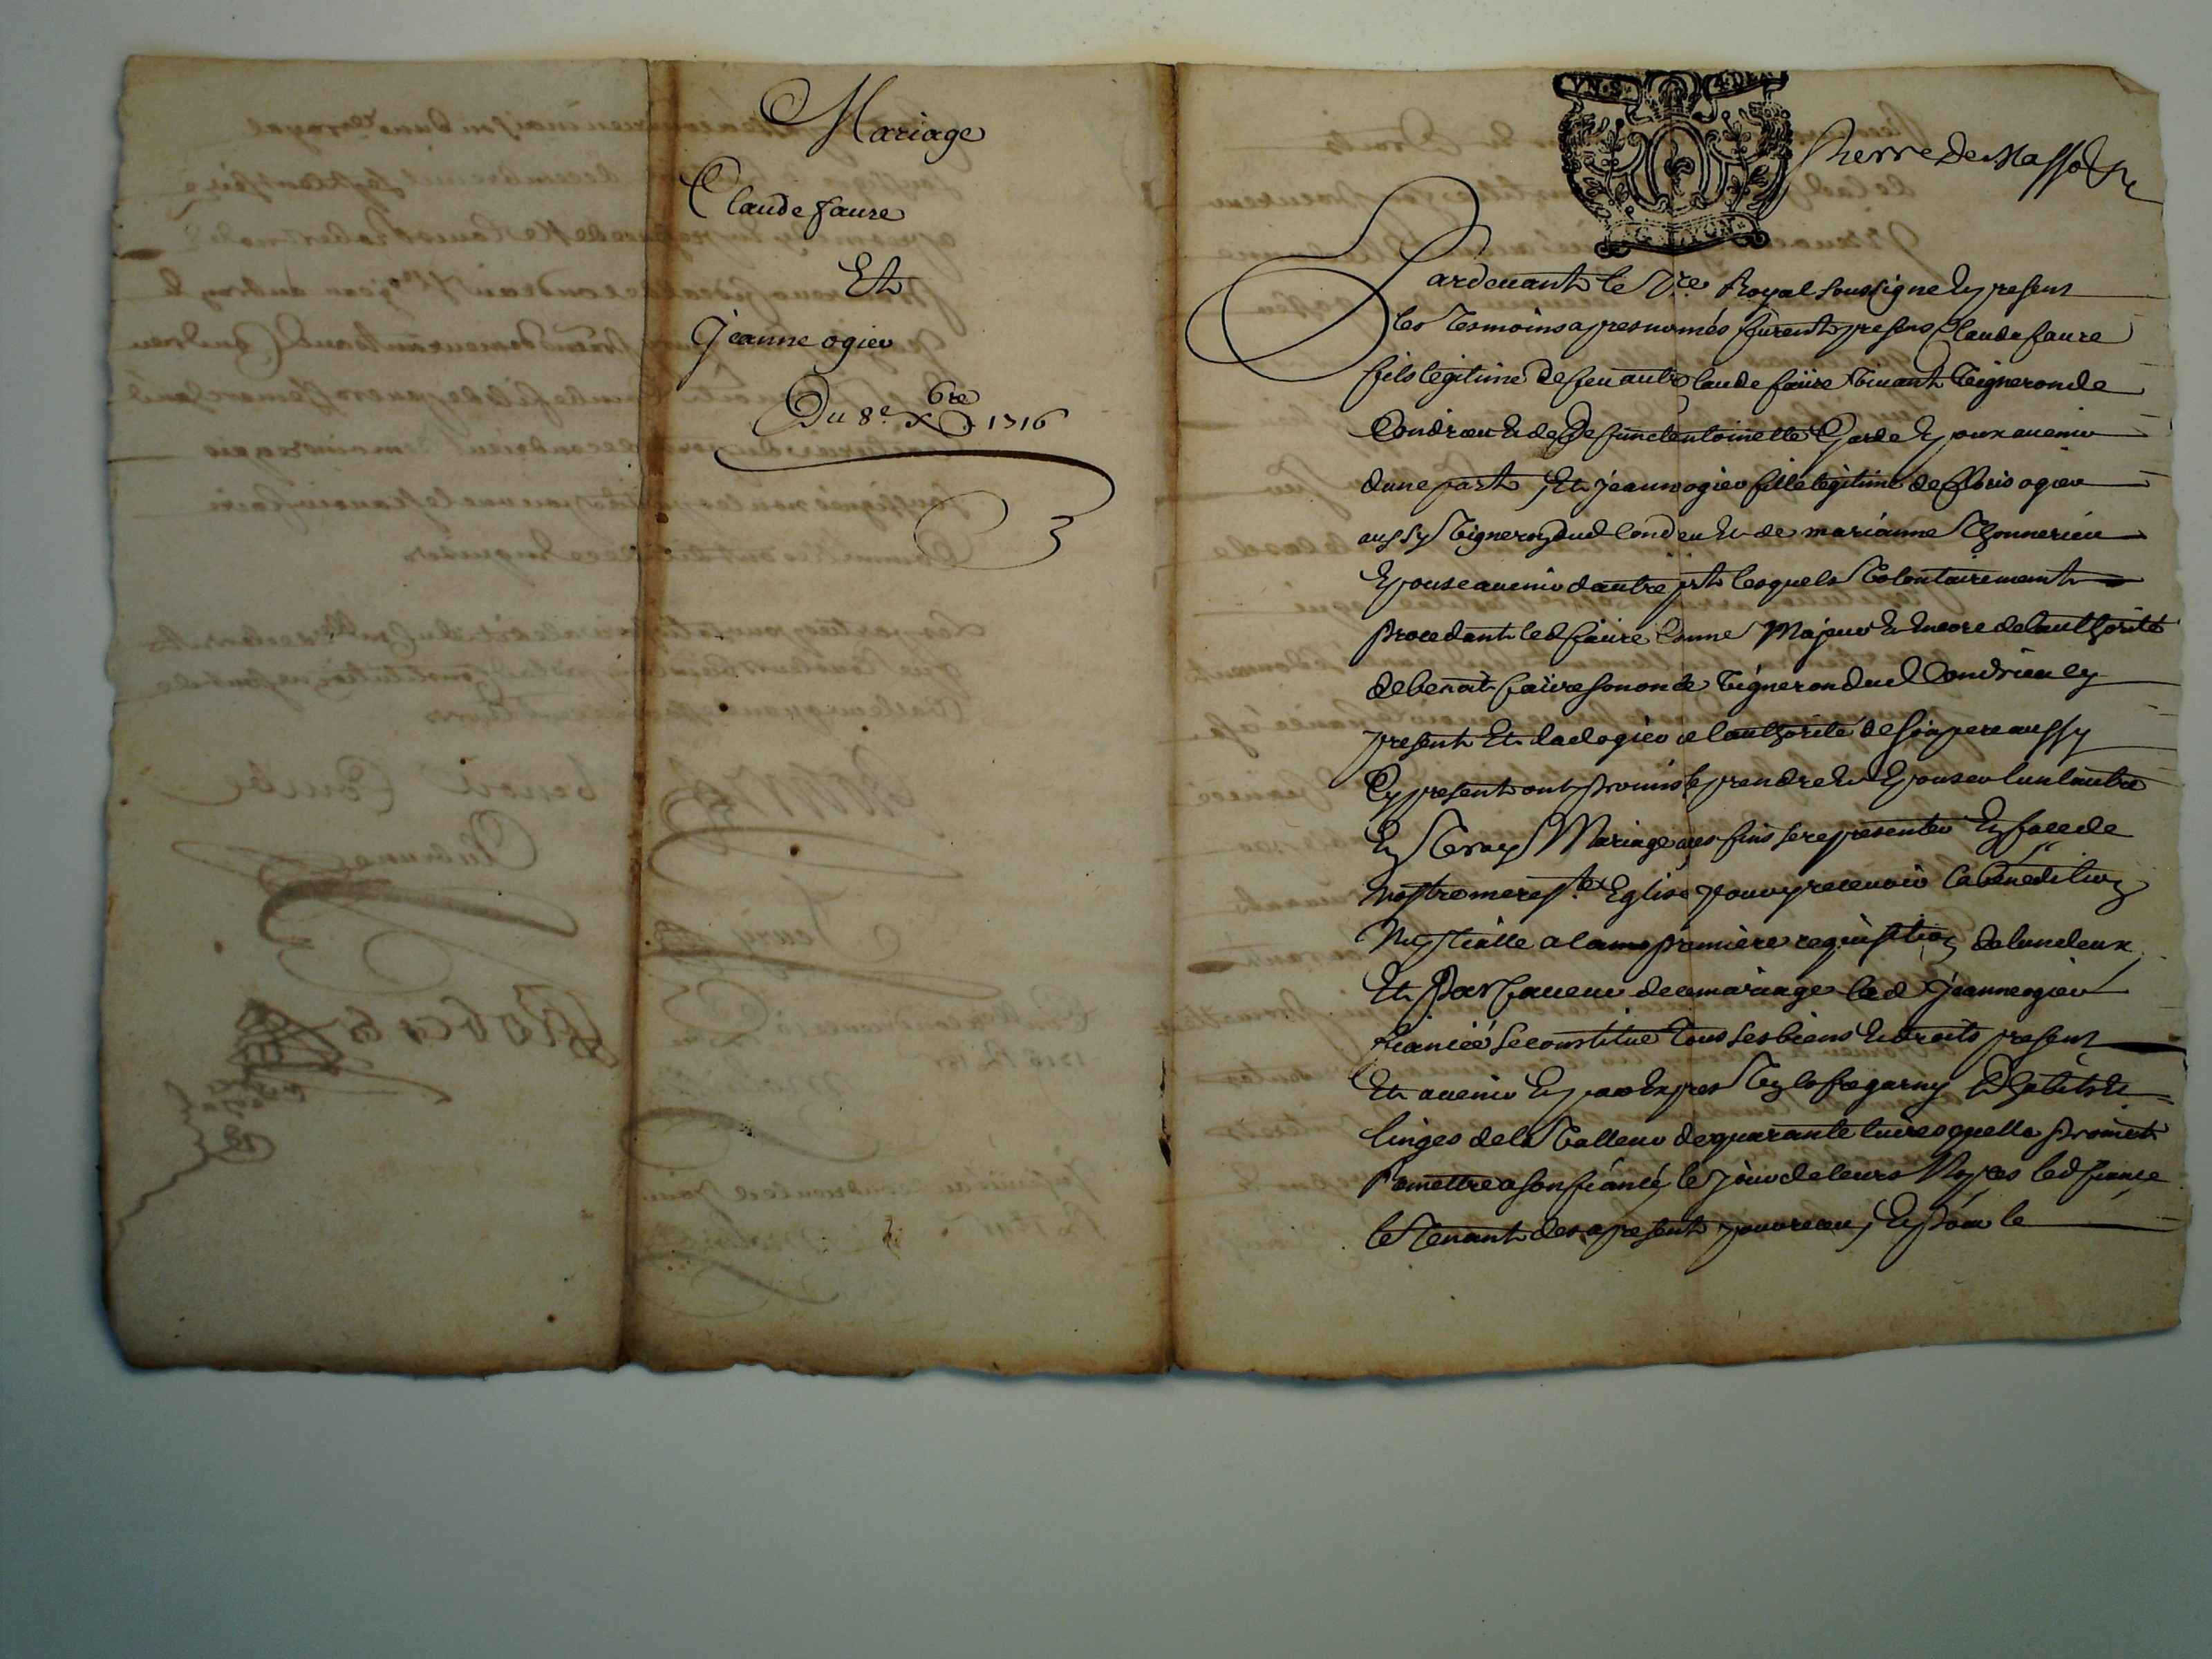 Mariage
Claude faure
Et
Jeanne ogier
Du 8e Xbre 1716
3
VN.S. 4.D.
G. LYON
Pierre de Massol
Pardevant le Nre Royal soussigné Et presens
les tesmoins apres només furent presens Claude faure
fils legitime de feu autre Claude faure vivant vigneron de
Condrieu et de deffuncte antoinette Garde Epoux avenir
dune part, Et jeanne ogier fille legitime de floris ogier
aussy vigneron dud Condrieu et de marianne Chonnerieu
Epouse avenir dautre part lesquels volontairement
procedant led faure comme Majeur et encore de lauthorité
de benoit faure son oncle vigneron dud Condrieu cy
present Et lad ogier de lauthorité de son pere aussy
Cy present ont promis se prendre et Epouser lun lautre
En vray Mariage aux fins se representer En face de
nostre mere ste Eglise pour y recevoir la benediction
Nuptialle a la premiere requisition de lun deux
Et par faveur de ce mariage lad jeanne ogier
fiancée se constitue tous ses biens et droits presens
Et avenir Et par Expres garny dhabits et
linges de la valleur de quarante livres quelle promet
Remettre a son fiancé le jour de leurs Nopces led fiancé
le tenant des a present pour receu, Et pour le